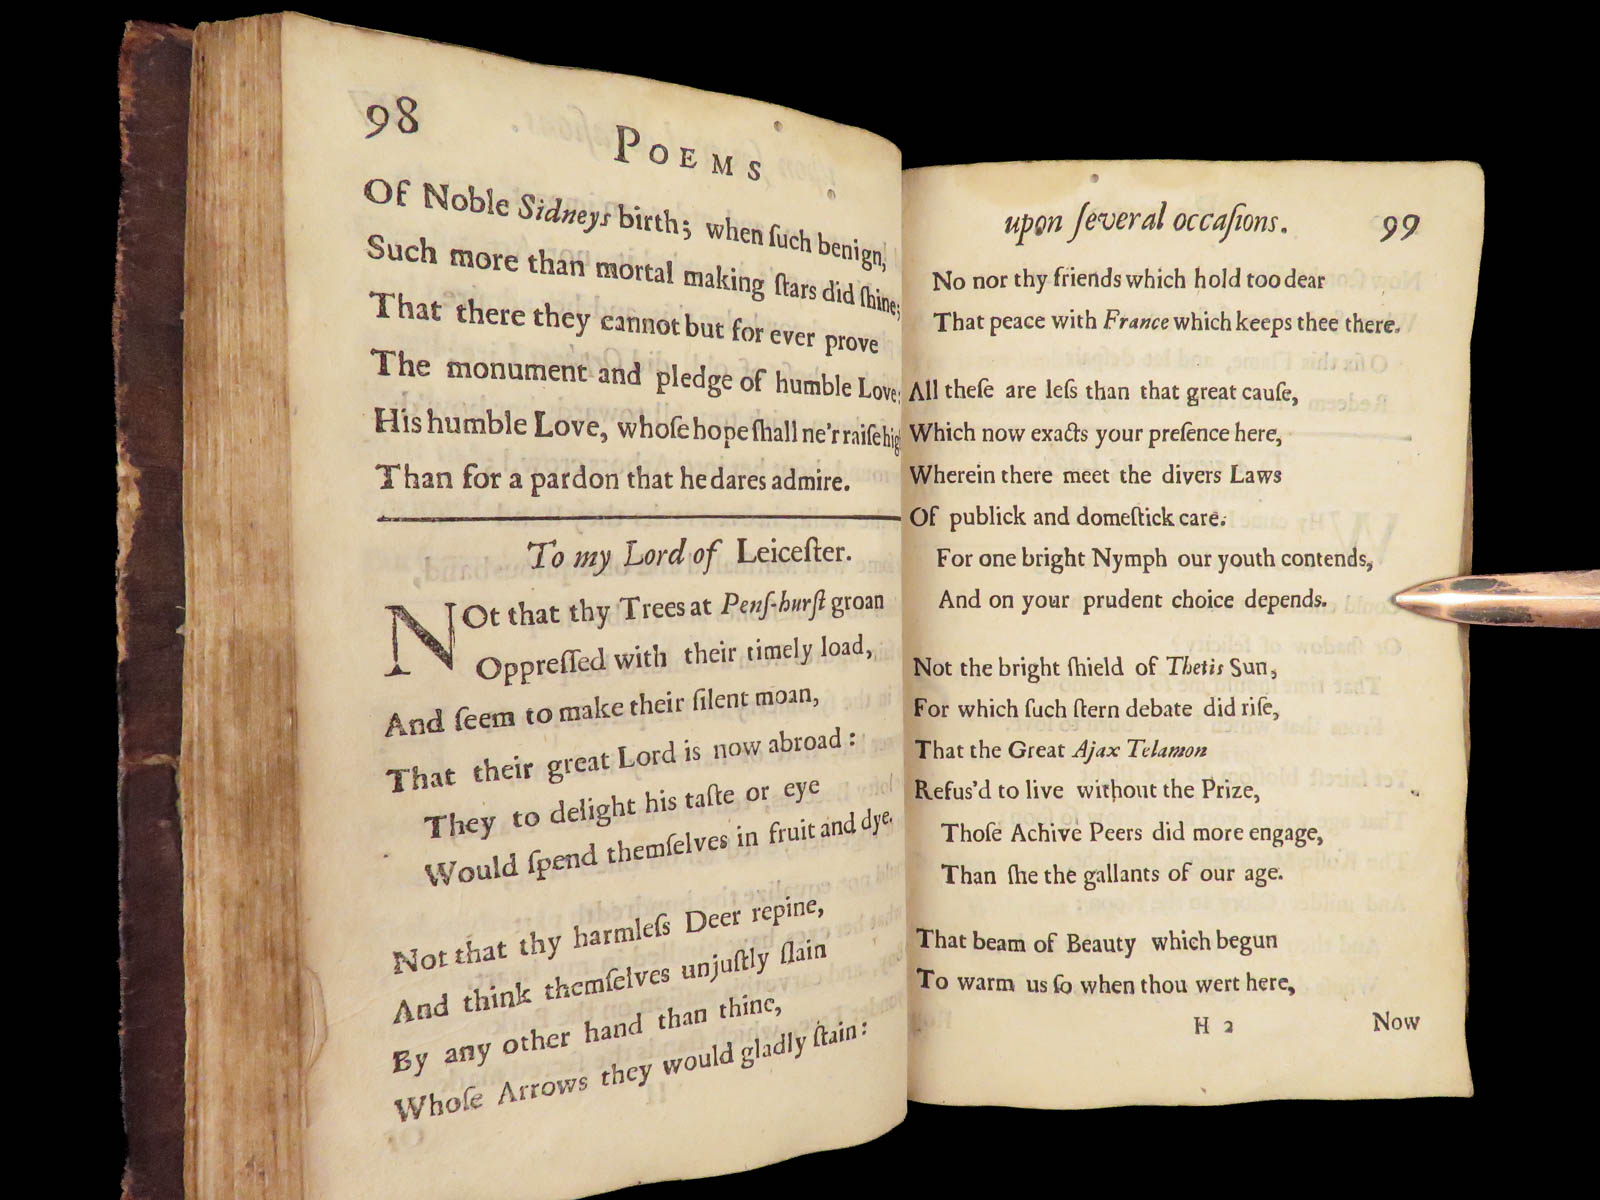 98
POEMS
Of Noble Sidneys birth; when ſuch benign,
Such more than mortal making ſtars did ſhine;
That there they cannot but for ever prove
The monument and pledge of humble Love:
His humble Love, whoſe hope ſhall ne'r raiſe hig
Than for a pardon that he dares admire.
To my Lord of Leiceſter.
NOt that thy Trees at Penſ-hurſt groan
Oppreſſed with their timely load,
And ſeem to make their ſilent moan,
That their great Lord is now abroad:
They to delight his taſte or eye
Would ſpend themſelves in fruit and dye.
Not that thy harmleſs Deer repine,
And think themſelves unjuſtly ſlain
By any other hand than thine,
Whoſe Arrows they would gladly ſtain:
upon ſeveral occaſions. 99
No nor thy friends which hold too dear
That peace with France which keeps thee there.
All theſe are leſs than that great cauſe,
Which now exacts your preſence here,
Wherein there meet the divers Laws
Of publick and domeſtick care.
For one bright Nymph our youth contends,
And on your prudent choice depends.
Not the bright ſhield of Thetis Sun,
For which ſuch ſtern debate did riſe,
That the Great Ajax Telamon
Refus'd to live without the Prize,
Thoſe Achive Peers did more engage,
Than ſhe the gallants of our age.
That beam of Beauty which begun
To warm us ſo when thou wert here,
H 2 Now